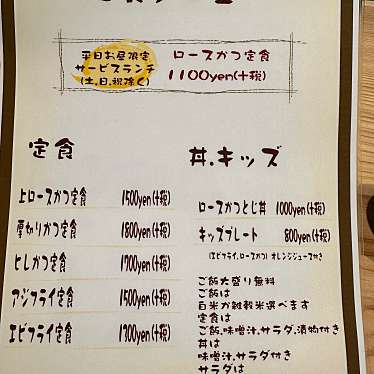 平日お昼限定
サービスランチ
(土,日,祝除く)
ロースかつ定食
1100yen(+税)
定食
上ロースかつ定食 1500yen(+税)
厚切りかつ定食 1800yen(+税)
ヒレかつ定食 1700yen(+税)
アジフライ定食 1500yen(+税)
エビフライ定食 1900yen(+税)
丼.キッズ
ロースかつとじ丼 1000yen(+税)
キッズプレート 800yen(+税)
(エビフライ,ロースかつ) オレンジジュース付き
ご飯大盛り無料
ご飯は
白米か雑穀米選べます
定食は
ご飯,味噌汁,サラダ,漬物付き
丼は
味噌汁,サラダ付き
サラダは